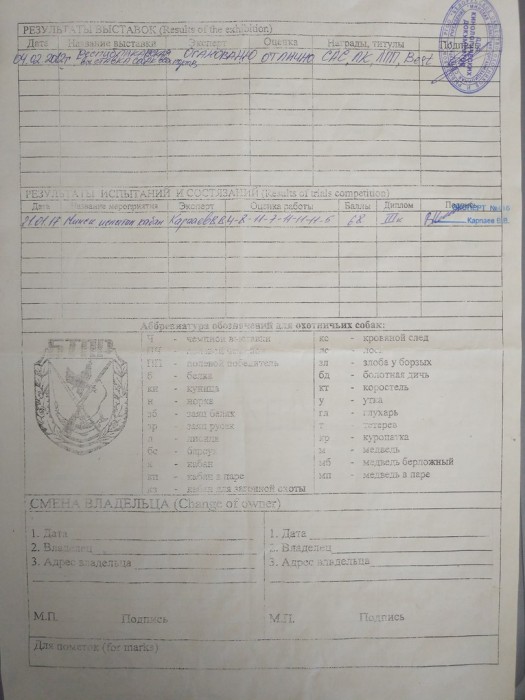 РЕЗУЛЬТАТЫ ВЫСТАВОК (Results of the exhibition)
Дата Название выставки Эксперт Оценка Награды, титулы Подпись
ОТЛИЧНО CAC, ЛК, ЛПП, Best
РЕЗУЛЬТАТЫ ИСПЫТАНИЙ И СОСТЯЗАНИЙ (Results of trials competition)
Дата Название мероприятия Эксперт Оценка работы Баллы Диплом Подпись
21.01.17 Минск испытан кабан Карпаев В.В. 4-8-11-7-11-11-11-5 68 III
ЭКСПЕРТ
Карпаев В.В.
Аббревиатура обозначений для охотничьих собак:
STAR
Ч - чемпион выставки кс - кровяной след
лс - лось
ПП - полевой победитель зв - злоба у борзых
б - белка бд - болотная дичь
кн - куница кт - коростель
н - норка у - утка
зб - заяц беляк гл - глухарь
зр - заяц русак т - тетерев
л - лисица кр - куропатка
бс - барсук м - медведь
к - кабан мб - медведь берложный
кп - кабан в паре мп - медведь в паре
кз - кабан для загонной охоты
СМЕНА ВЛАДЕЛЬЦА (Change of owner)
1. Дата 1. Дата
2. Владелец 2. Владелец
3. Адрес владельца 3. Адрес владельца
М.П. Подпись М.П. Подпись
Для пометок (for marks)